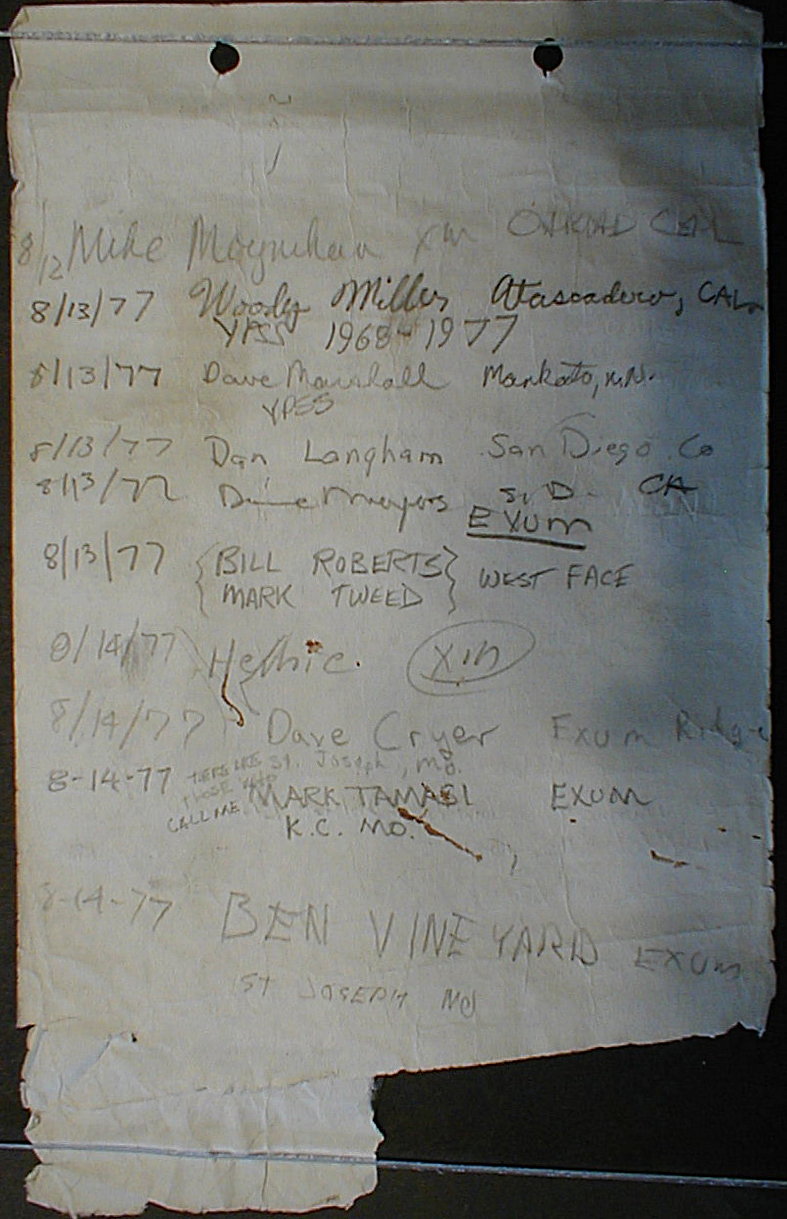 8/12 Mike Moynihan xm OAKLAND CAL
8/13/77 Woody Miller Atascadero, CAL
YPSS 1968-1977
8/13/77 Dave Marshall Mankato, MN.
YPSS
8/13/77 Dan Langham San Diego Co
8/13/77 Dave Meyers S. D. CA
EXUM
8/13/77 { BILL ROBERTS } WEST FACE
{ MARK TWEED }
8/14/77
8/14/77 Dave Cryer Exum Ridge
St. Joseph, Mo.
8-14-77 MARK TAMASI EXUM
CALL ME
K.C. MO.
8-14-77 BEN VINEYARD EXUM
ST JOSEPH MO